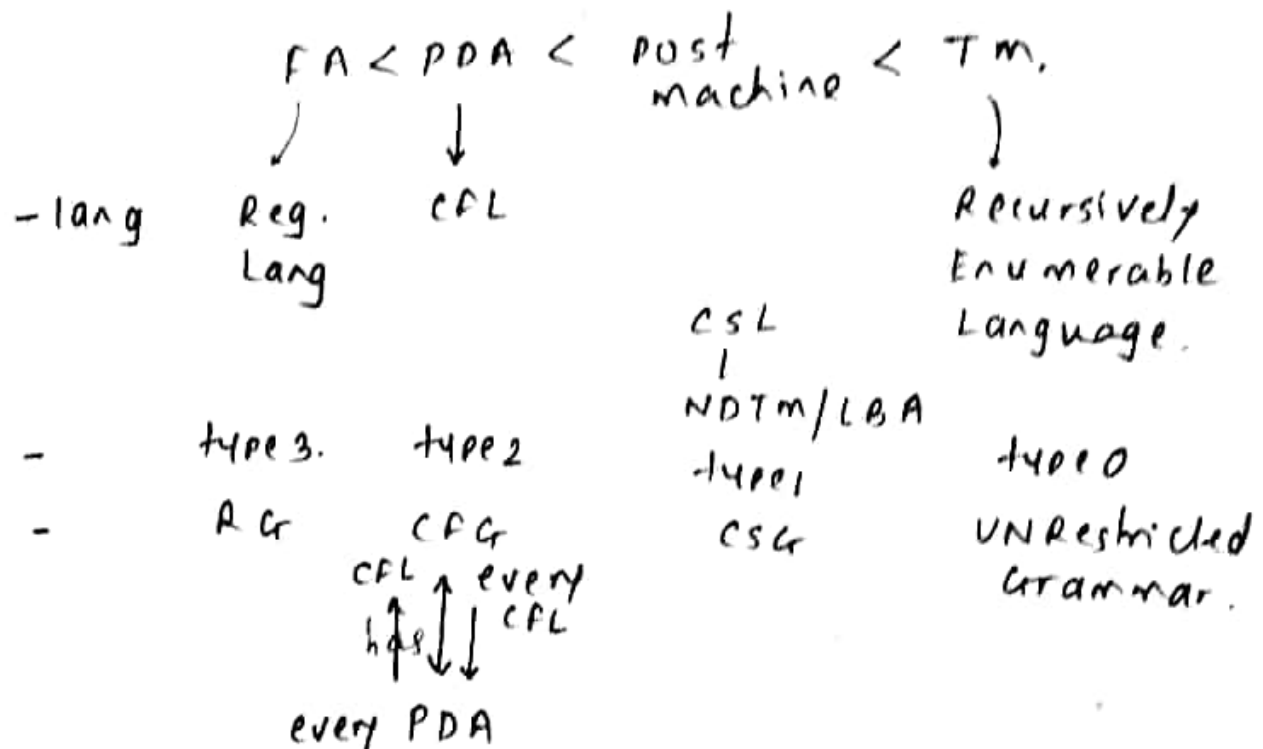 FA < PDA < Post machine < Tm.
- lang Reg. Lang CFL Recursively Enumerable Language.
CSL
NDTm/LBA
- type 3. type 2 type 1 type 0
- RG CFG CSG UNRestricted Grammar.
CFL every CFL
has
every PDA